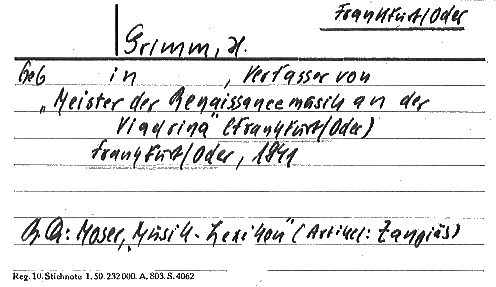 Frankfurt/Oder
Grimm, H.
Geb in , Verfasser von
„Meister der Renaissancemusik an der
Viadrina" (Frankfurt/Oder)
Frankfurt/Oder, 1941
Moser, „Musik-Lexikon" (Artikel: Zangius)
Reg. 10. Stichnote 1. 50. 232 000. A. 803. S. 4062